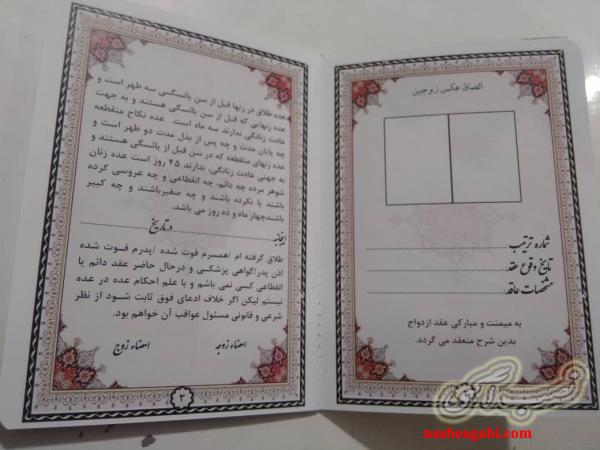 الصاق عکس زوجین
شماره ترتیب:
تاریخ وقوع عقد:
مشخصات عاقد:
به میمنت و مبارکی عقد ازدواج
بدین شرح منعقد می گردد.
عده طلاق در زنها قبل از سن یائسگی سه طهر است و
عده زنهایی که قبل از سن یائسگی هستند و به جهت
عادت زنانگی ندارند سه ماه است. عده نکاح منقطعه
چه پایان مدت و چه پس از بذل مدت دو طهر است و
عده زنهای منقطعه که در سن قبل از یائسگی هستند و
به جهتی عادت زنانگی، ندارند ۴۵ روز است عده زنان
شوهر مرده چه دائم، چه انقطاعی و چه عروسی کرده
باشند یا نکرده باشند و چه صغیرباشند و چه کبیر
باشندچهار ماه و ده روز می باشد.
اینجانبه در تاریخ
طلاق گرفته ام /همسرم فوت شده /پدرم فوت شده
اذن پدر/گواهی پزشکی و درحال حاضر عقد دائم یا
انقطاعی کسی نمی باشم و با علم احکام عده در عده
نیستم لیکن اگر خلاف ادعای فوق ثابت شود از نظر
شرعی و قانونی مسئول عواقب آن خواهم بود.
امضاء زوجه امضاء زوج
۳
نصب آگهی
nasbeagahi.com